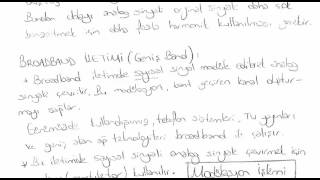 Bundan dolayı analog sinyale orjinal sinyale daha çok
benzetmek için daha fazla harmonik kullanılması gerekir.
BROADBAND İLETİMİ (Geniş Band):
* Broadband iletimde sayısal sinyal modüle edilerek analog
sinyale çevrilir. Bu modülasyon, bant geçiren kanal oluştur-
mayı sağlar.
Evimizde kullandığımız telefon sistemleri, TV yayınları
ve geniş alan ağ teknolojileri broadband ile çalışır.
* Bu iletimde sayısal sinyali analog sinyale çevirmek için
kullanılır. Modülasyon İşlemi